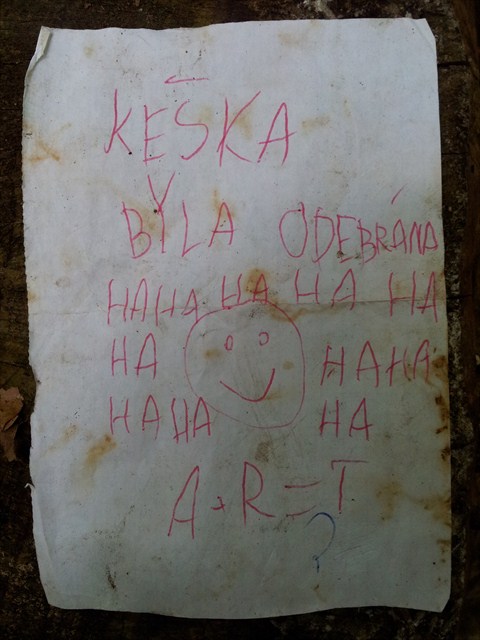 KEŠKA
BYLA ODEBRÁNA
HAHA HA HA HA
HA HAHA
HAHA HA
A+R=T
?